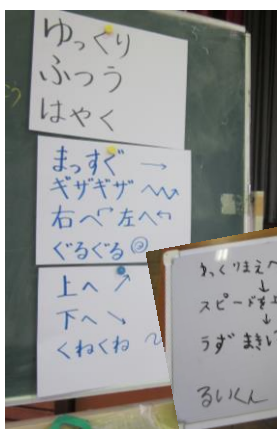 ゆっくり
ふつう
はやく
まっすぐ →
ギザギザ
右へ 左へ
ぐるぐる
上へ ↗
下へ ↘
くねくね
ゆっくりまえへ
↓
スピードを上
↓
うずまき
るいくん